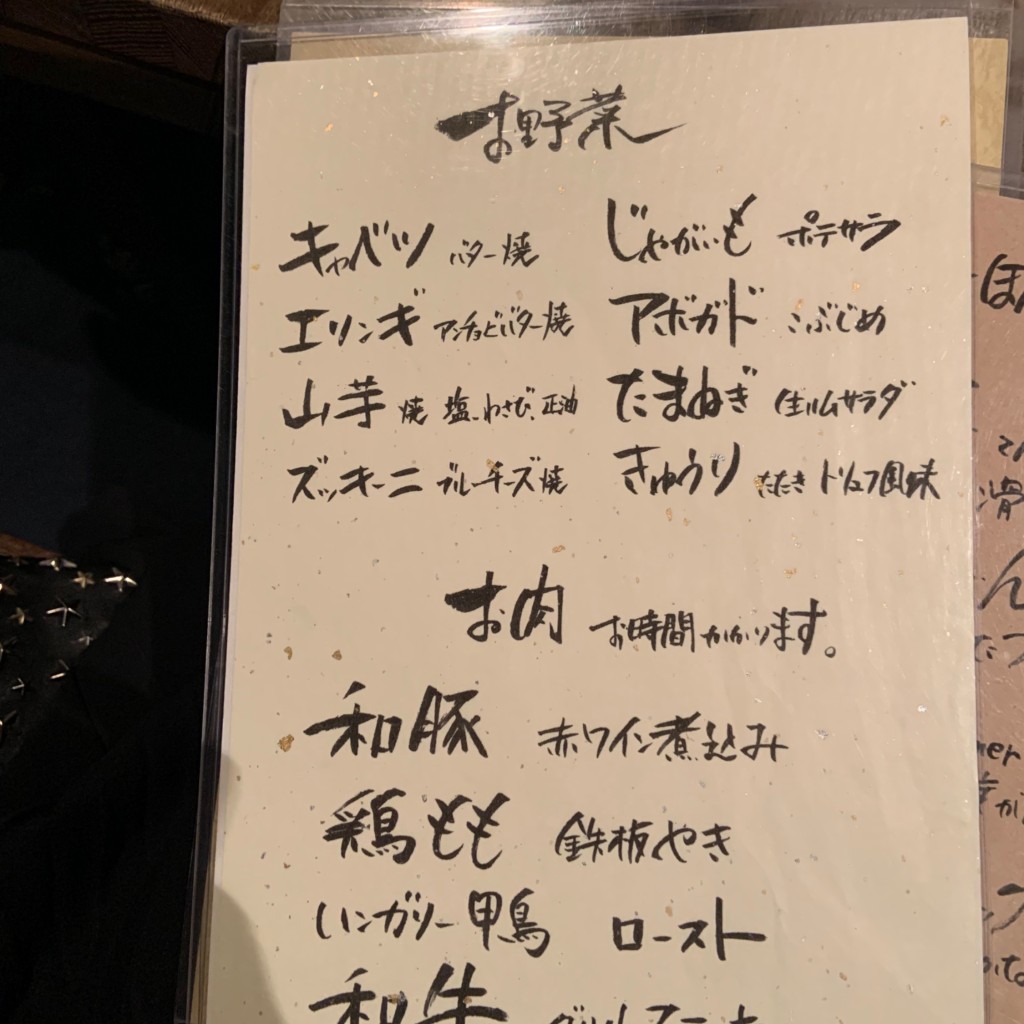 お野菜
キャベツ バター焼 じゃがいも ポテサラ
エリンギ アンチョビバター焼 アボガド こぶじめ
山芋 焼 塩、わさび、正油 たまねぎ 生ハムサラダ
ズッキーニ ブルーチーズ焼 きゅうり たたき トリュフ風味
お肉 お時間かかります。
和豚 赤ワイン煮込み
鶏もも 鉄板やき
ハンガリー鴨 ロースト
和牛